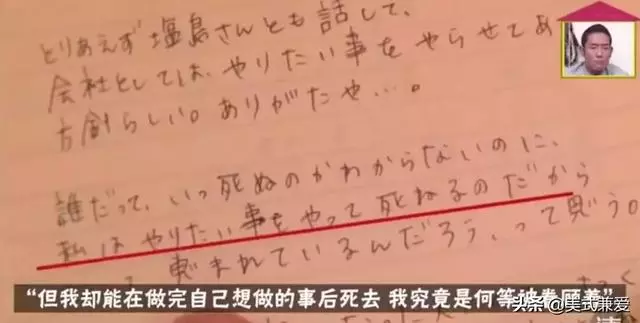 とりあえず塩島さんとも話して、
会社としては、やりたい事をやらせてあ
方針らしい。ありがたや…。
誰だって、いつ死ぬのかわからないのに、
私はやりたい事をやって死ねるのだから
まれているんだろう、って思う。
“但我却能在做完自己想做的事后死去 我究竟是何等被眷顾着”
头条@美式兼爱